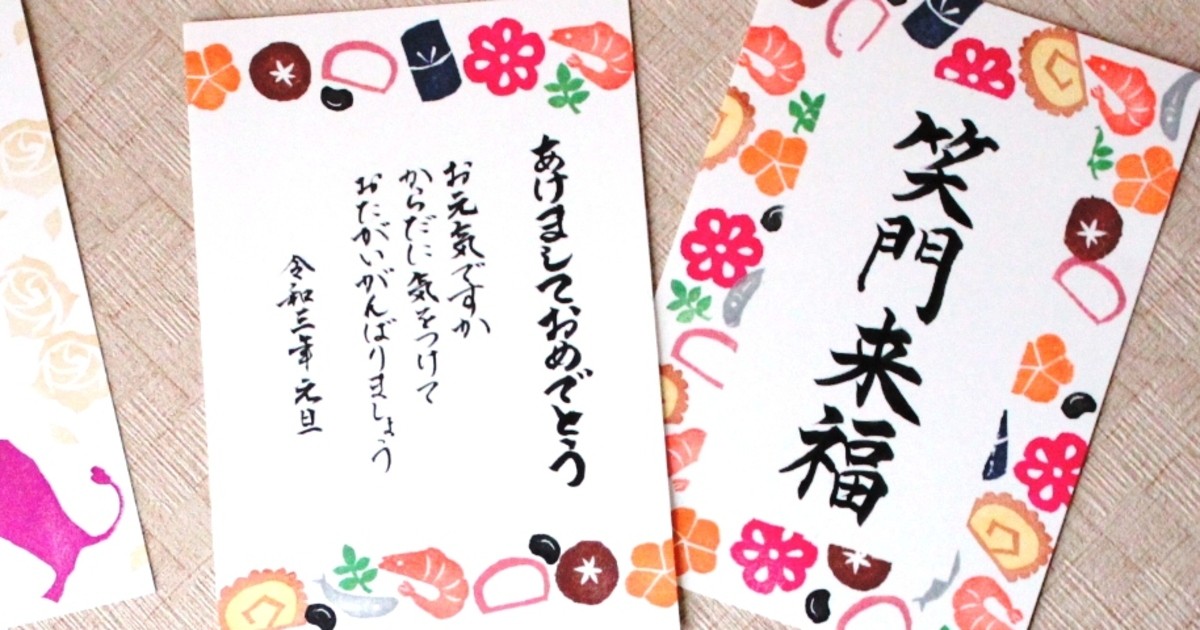 あけましておめでとう
お元気ですか
からだに気をつけて
おたがいがんばりましょう
令和三年元旦
笑門来福